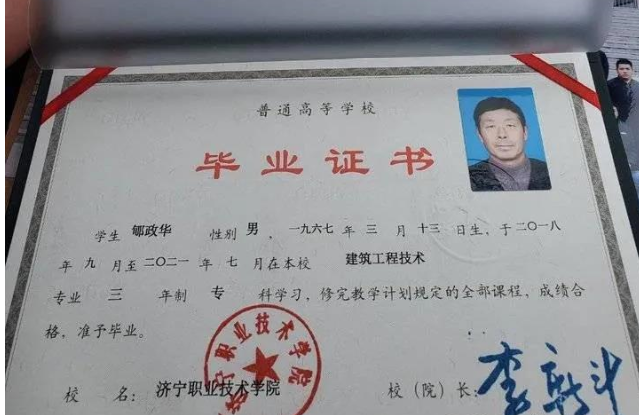 普通高等学校
毕业证书
学生 郇政华 性别 男，一九六七年三月十三日生，于二〇一八
年九月至二〇二一年七月在本校 建筑工程技术
专业三年制专科学习，修完教学计划规定的全部课程，成绩合
格，准予毕业。
济宁职业技术学院
校 名：济宁职业技术学院 校（院）长：